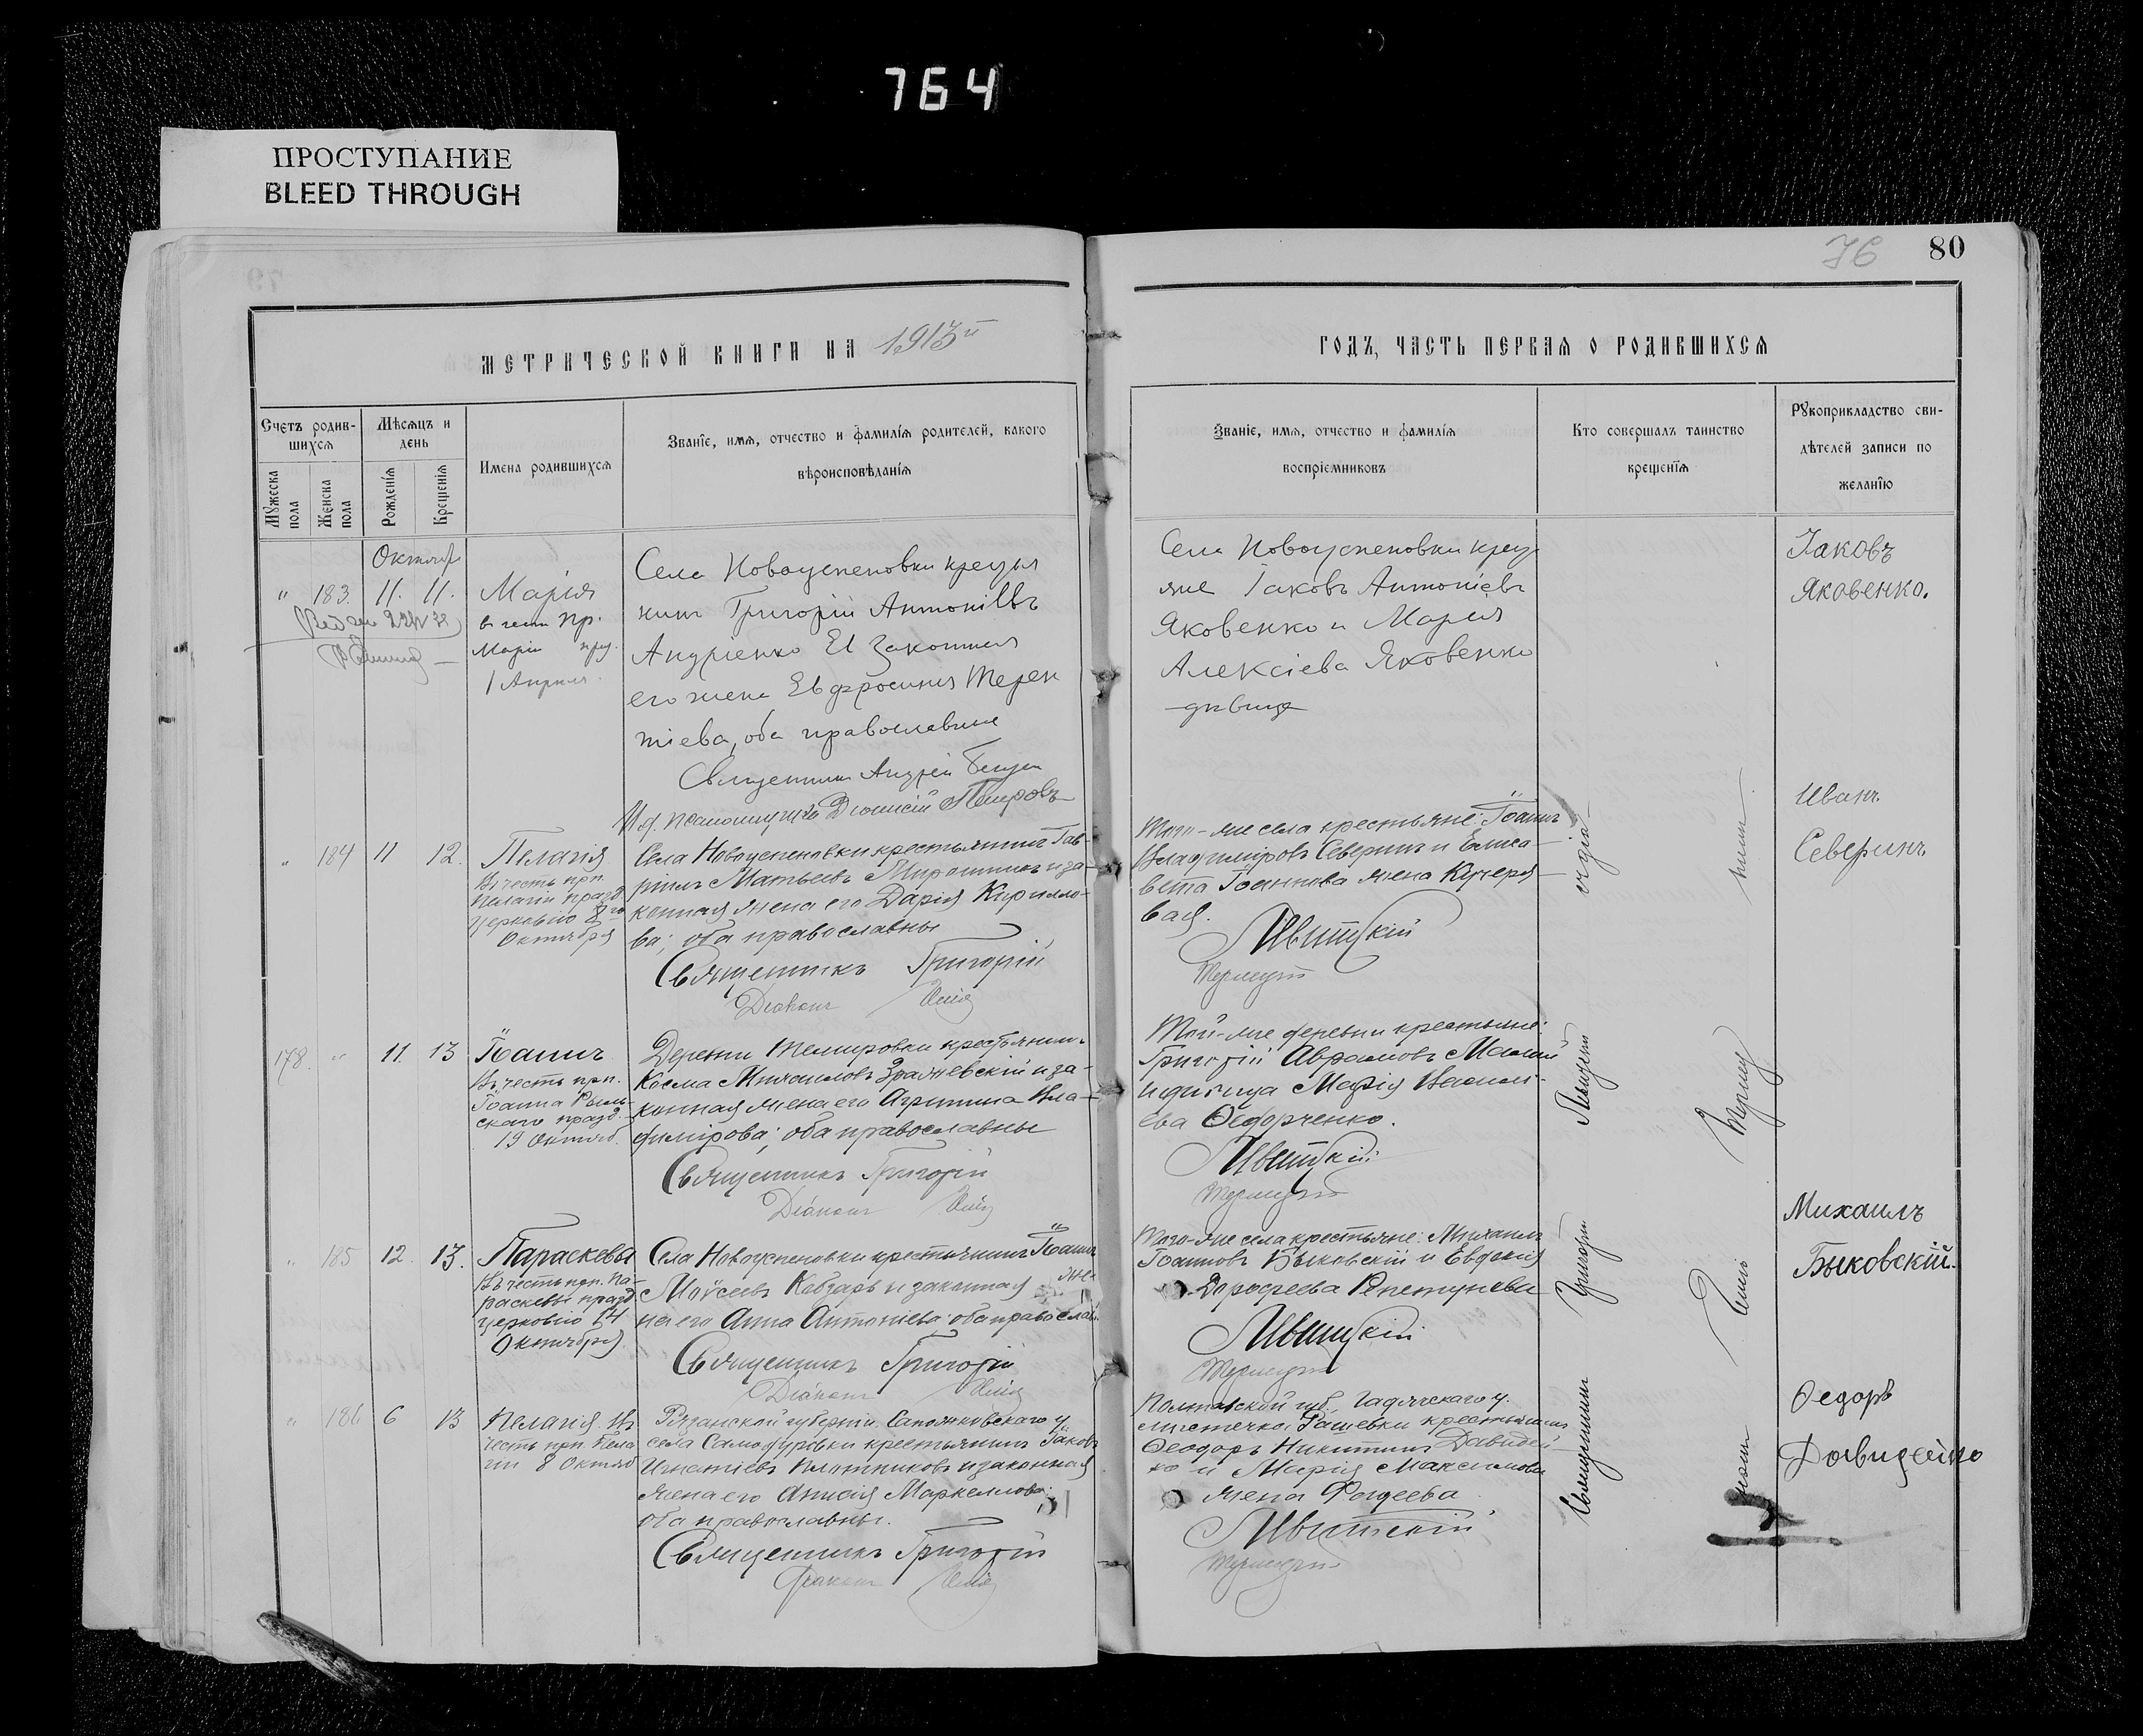 764
ПРОСТУПАНИЕ
BLEED THROUGH
80
МЕТРИЧЕСКОЙ КНИГИ НА 1913й
ГОДЪ, ЧАСТЬ ПЕРВАЯ О РОДИВШИХСЯ
Счетъ родив-
шихся
Мѣсяцъ и
день
Мужеска
пола
Женска
пола
Рожденія
Крещенія
Имена родившихся
Званіе, имя, отчество и фамилія родителей, какого
вѣроисповѣданія
Званіе, имя, отчество и фамилія
воспріемниковъ
Кто совершалъ таинство
крещенія
Рукоприкладство сви-
дѣтелей записи по
желанію
183. 11. 11.
Марія
в честь пр.
Маріи
1 Апрѣля.
Села Новоуспеновки крестья
нинъ Григорій Антоніевъ
Андріенко и законная
его жена Евфросинія Терен
тіева, оба православные
Священник Андрей
И.д. псаломщика Діонисій Петровъ
Села Новоуспеновки крестья
яне Іаковъ Антоніевъ
Яковенко и Марія
Алексіева Яковенко
дѣвица
Іаковъ
Яковенко.
184 11 12.
Пелагія
Въ честь прп.
Пелагіи празд.
церковію 8го
Октября
Села Новоуспеновки крестьянинъ Гав-
ріилъ Матѳеевъ Мирошникъ и за-
конная жена его Дарія Кирилло-
ва; оба православны
Священникъ Григорій
Діаконъ
Того-же села крестьяне: Іоаннъ
Владиміровъ Северинъ и Елиса-
вета Іоаннова жена Кучеря-
вая.
Иванъ
Северинъ
178. " 11. 13
Іоаннъ
Въ честь прп.
Іоанна Рыль-
скаго празд.
19 Октяб.
Деревни Темировки крестьянинъ
Косма Михаиловъ Зражевскій и за-
конная жена его Агрипина Вла-
димірова; оба православны
Священникъ Григорій
Діаконъ
Той-же деревни крестьяне:
Григорій Аврамовъ Малий
и дѣвица Марія Васили-
ева Ѳедорченко.
" 185 12. 13.
Параскева
Въ честь прп. Па-
раскевы празд.
церковію 14
Октября
Села Новоуспеновки крестьянинъ Іоаннъ
Моѵсеевъ Кобзарь и законная же-
на его Анна Антоніева; оба православ.
Священникъ Григорій
Діаконъ
Того-же села крестьяне: Михаилъ
Іоанновъ Быковскій и Евдокія
Дорофеева
Михаилъ
Быковскій.
" 186 6 13
Пелагія. Въ
честь прп. Пела
гіи 8 Октяб
Рязанской губерніи, Сапожковскаго у.
села Самодуровки крестьянинъ Іаковъ
Игнатіевъ Плотниковъ и законная
жена его Анисія Маркеллова;
оба православны.
Священникъ Григорій
Діаконъ
Полтавской губ., Гадячскаго у.
мѣстечка Рашевки крестьянинъ
Ѳеодоръ Никитинъ Давиден-
ко и Марія Максимова
жена Фадеева
Ѳедоръ
Давиденко